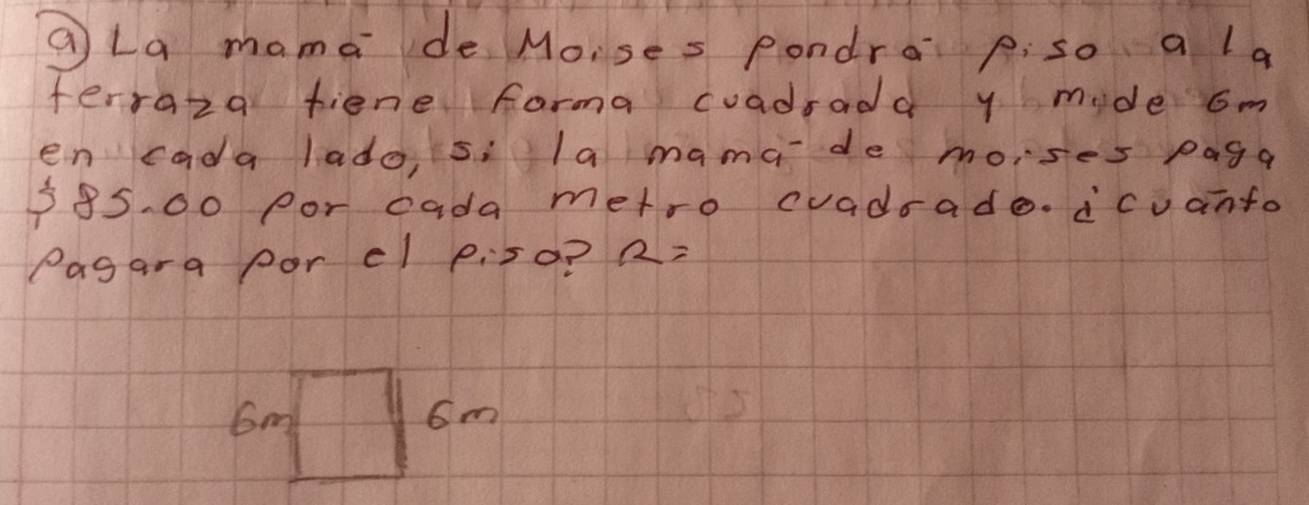 a) La mamá de Moises pondrá piso a la
terraza tiene forma cuadrada y mide 6m
en cada lado, si la mamá de moises paga
$85.00 por cada metro cuadrado. ¿cuánto
Pagara por el piso? R=
6m 6m